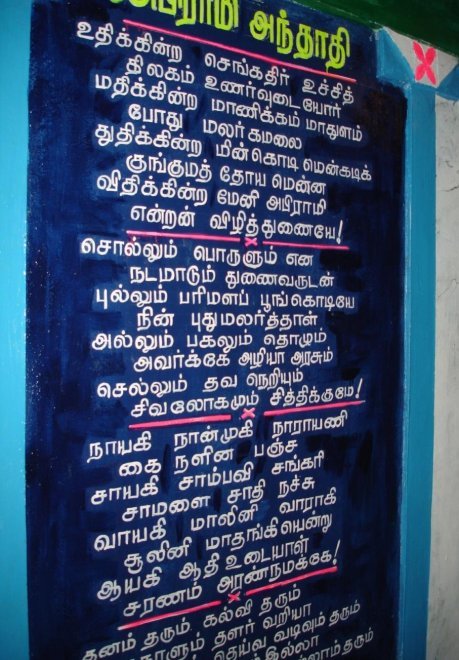 அபிராமி அந்தாதி
உதிக்கின்ற செங்கதிர் உச்சித்
திலகம் உணர்வுடையோர்
மதிக்கின்ற மாணிக்கம் மாதுளம்
போது மலர்கமலை
துதிக்கின்ற மின்கொடி மென்கடிக்
குங்குமத் தோய மென்ன
விதிக்கின்ற மேனி அபிராமி
என்றன் விழித்துணையே!
சொல்லும் பொருளும் என
நடமாடும் துணைவருடன்
புல்லும் பரிமளப் பூங்கொடியே
நின் புதுமலர்த்தாள்
அல்லும் பகலும் தொழும்
அவர்க்கே அழியா அரசும்
செல்லும் தவ நெறியும்
சிவலோகமும் சித்திக்குமே!
நாயகி நான்முகி நாராயணி
கை நளின பஞ்ச
சாயகி சாம்பவி சங்கரி
சாமளை சாதி நச்சு
வாயகி மாலினி வாராகி
சூலினி மாதங்கியென்று
ஆயகி ஆதி உடையாள்
சரணம் அரண்நமக்கே!
தனம் தரும் கல்வி தரும்
நாளும் தளர் வறியா
தெய்வ வடிவும் தரும்
இல்லா